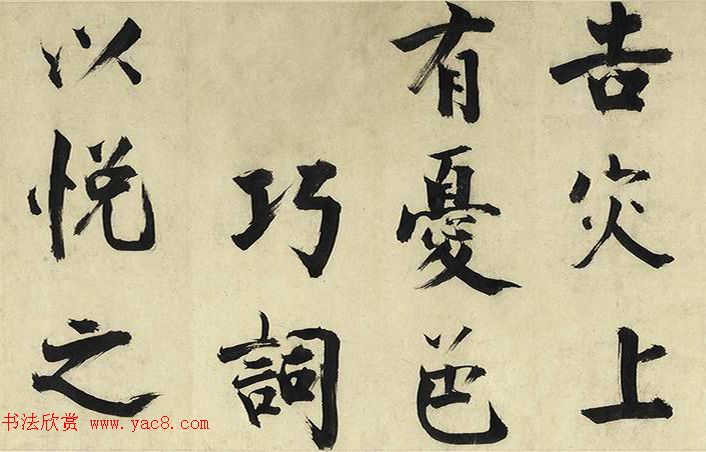 告灾上
有憂色
巧詞
以悦之
书法欣赏 www.yac8.com